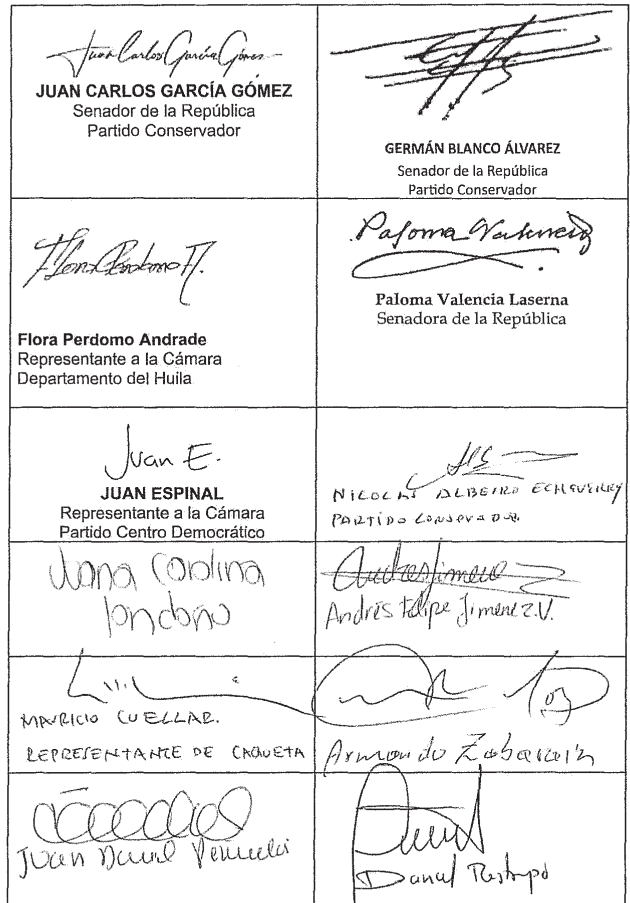 Juan Carlos García Gómez
JUAN CARLOS GARCÍA GÓMEZ
Senador de la República
Partido Conservador
GERMÁN BLANCO ÁLVAREZ
Senador de la República
Partido Conservador
Flora Perdomo A.
Flora Perdomo Andrade
Representante a la Cámara
Departamento del Huila
Paloma Valencia
Paloma Valencia Laserna
Senadora de la República
Juan E.
JUAN ESPINAL
Representante a la Cámara
Partido Centro Democrático
NICOLAS ALBEIRO ECHEVERRY
PARTIDO CONSERVADOR
Juana Carolina
Londoño
Andres Jimenez
Andrés Felipe Jimenez V.
MAURICIO CUELLAR.
REPRESENTANTE DE CAQUETA
Armando Zabarain
Juan Daniel
Daniel Restrepo